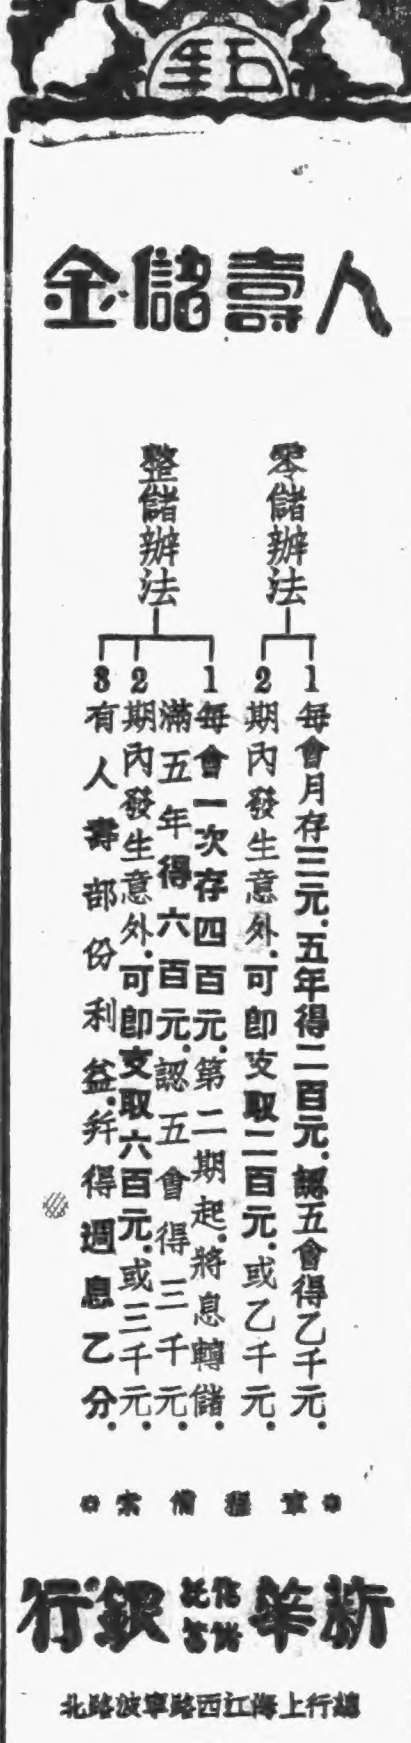 人壽儲金
零儲辦法
1 每會月存三元.五年得二百元.認五會得乙千元.
2 期內發生意外.可卽支取二百元.或乙千元.
整儲辦法
1 每會一次存四百元.第二期起.將息轉儲.
滿五年得六百元.認五會得三千元.
2 期內發生意外.可卽支取六百元.或三千元.
3 有人壽部份利益.幷得週息乙分.
章程備索
新華信託儲蓄銀行
總行上海江西路寧波路北